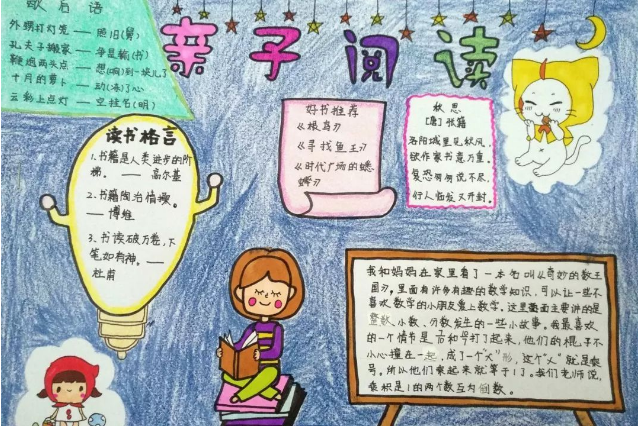 歇后语
外甥打灯笼——照旧(舅)
孔夫子搬家——净是输(书)
鞭炮两头点——想(响)到一块儿了
十月的萝卜——动(冻)了心
云彩上点灯——空挂名(明)
亲子阅读
读书格言
1.书籍是人类进步的阶
梯。——高尔基
2.书籍陶冶情操。
——博维
3.书读破万卷,下
笔如有神。——
杜甫
好书推荐
《根鸟》
《寻找鱼王》
《时代广场的蟋
蟀》
秋思
[唐]张籍
洛阳城里见秋风,
欲作家书意万重。
复恐匆匆说不尽,
行人临发又开封。
我和妈妈在家里看了一本书叫《奇妙的数王
国》。里面有许多有趣的数学知识,可以让一些不
喜欢数学的小朋友爱上数学。这里面主要讲的是
整数、小数、分数发生的一些小故事。我最喜欢
的一个情节是
和
打了起来,他们的棍子不
小心撞在一起,成了一个"×"形,这个"×"就是乘
号。所以他们乘起来就等于1了。我们老师说,
乘积是1的两个数互为倒数。